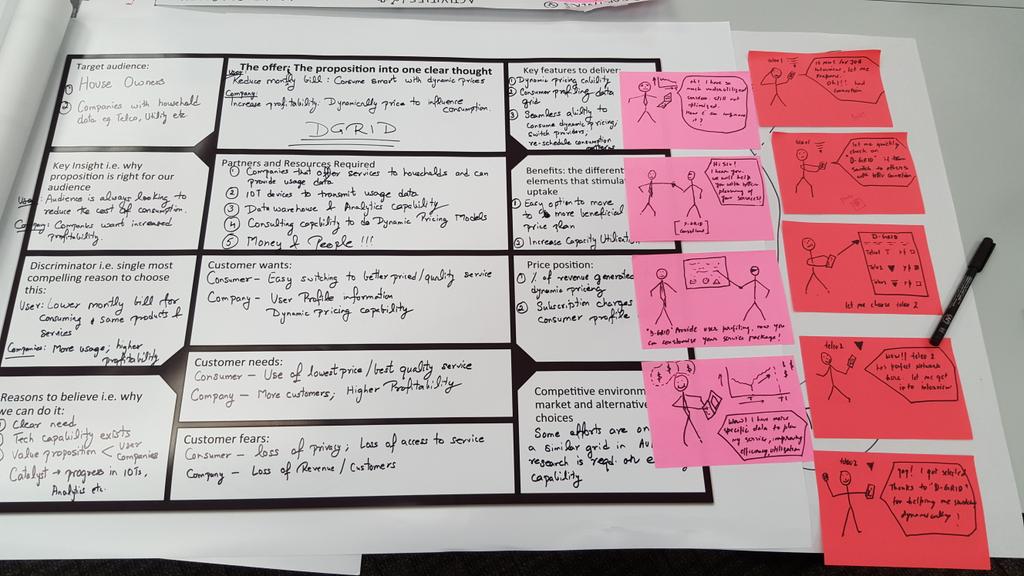 ACTIVITIES
Target audience:
① House Owners
② Companies with household
data eg Telco, Utility etc
The offer: The proposition into one clear thought
User:
Reduce montly bill : Consume smart with dynamic prices
Company:
Increase profitability. Dynamically price to influence
consumption.
DGRID
Key features to deliver:
① Dynamic pricing cability
② Consumer profiling data
grid
③ Seamless ability to
consume dynamic pricing;
switch providers,
re-schedule consumption
patterns
Key Insight i.e. why
proposition is right for our
audience
User: Audience is always looking to
reduce the cost of consumption.
Company: Companies want increased
profitability.
Partners and Resources Required
① Companies that offer services to households and can
provide usage data
② IOT devices to transmit usage data
③ Data warehouse & Analytics capability
④ Consulting capability to do Dynamic Pricing Models
⑤ Money & People !!!
Benefits: the different
elements that stimula
uptake
① Easy option to move
to more beneficial
price plan
② Increase Capacity Utilizati
Discriminator i.e. single most
compelling reason to choose
this:
User: Lower montly bill for
Consuming same products &
services
Companies: More usage; higher
profitability
Customer wants:
Consumer - Easy switching to better priced/quality service
Company - User Profile information
Dynamic pricing capability
Price position:
① % of revenue generated
dynamic pricing
② Subscription charges
Consumer profile
Customer needs:
Consumer - Use of lowest price/best quality service
Company - More customers; Higher Profitability
Reasons to believe i.e. why
we can do it:
① Clear need
② Tech capability exists
③ Value proposition < User
Companies
Catalyst → progress in IOTs,
Analytics etc.
Customer fears:
Consumer - loss of privacy; Loss of access to service
Company - Loss of Revenue / Customers
Competitive environm
market and alternativ
choices
Some efforts are on
a similar grid in Au
research is reqd. on e
capability
Oh! I have so
much underutilized
Still not
optimized.
How I can improve
it?
Hi Siv!
I hear you,
we will help
you with better
planning of
your services!
D-GRID
Consultant
"D-GRID" Provide user profiling, now you
can customise your service package!
Wow! I have more
specific data to plan
my service, improving
efficiency, utilization
telco 1
for JOB
Interview, let me
prepare.
Oh!! bad
connection
telco 1
let me quickly
check on
"D-GRID" if I can
switch to others
with better connection
D-GRID
Telco 1
Telco 2
let me choose telco 2
telco 2
Wow!! telco 2
has perfect network
here. let me get
into interview
telco 2
yay! I got selected
Thanks to "D-GRID"
for helping me switch
dynamically!